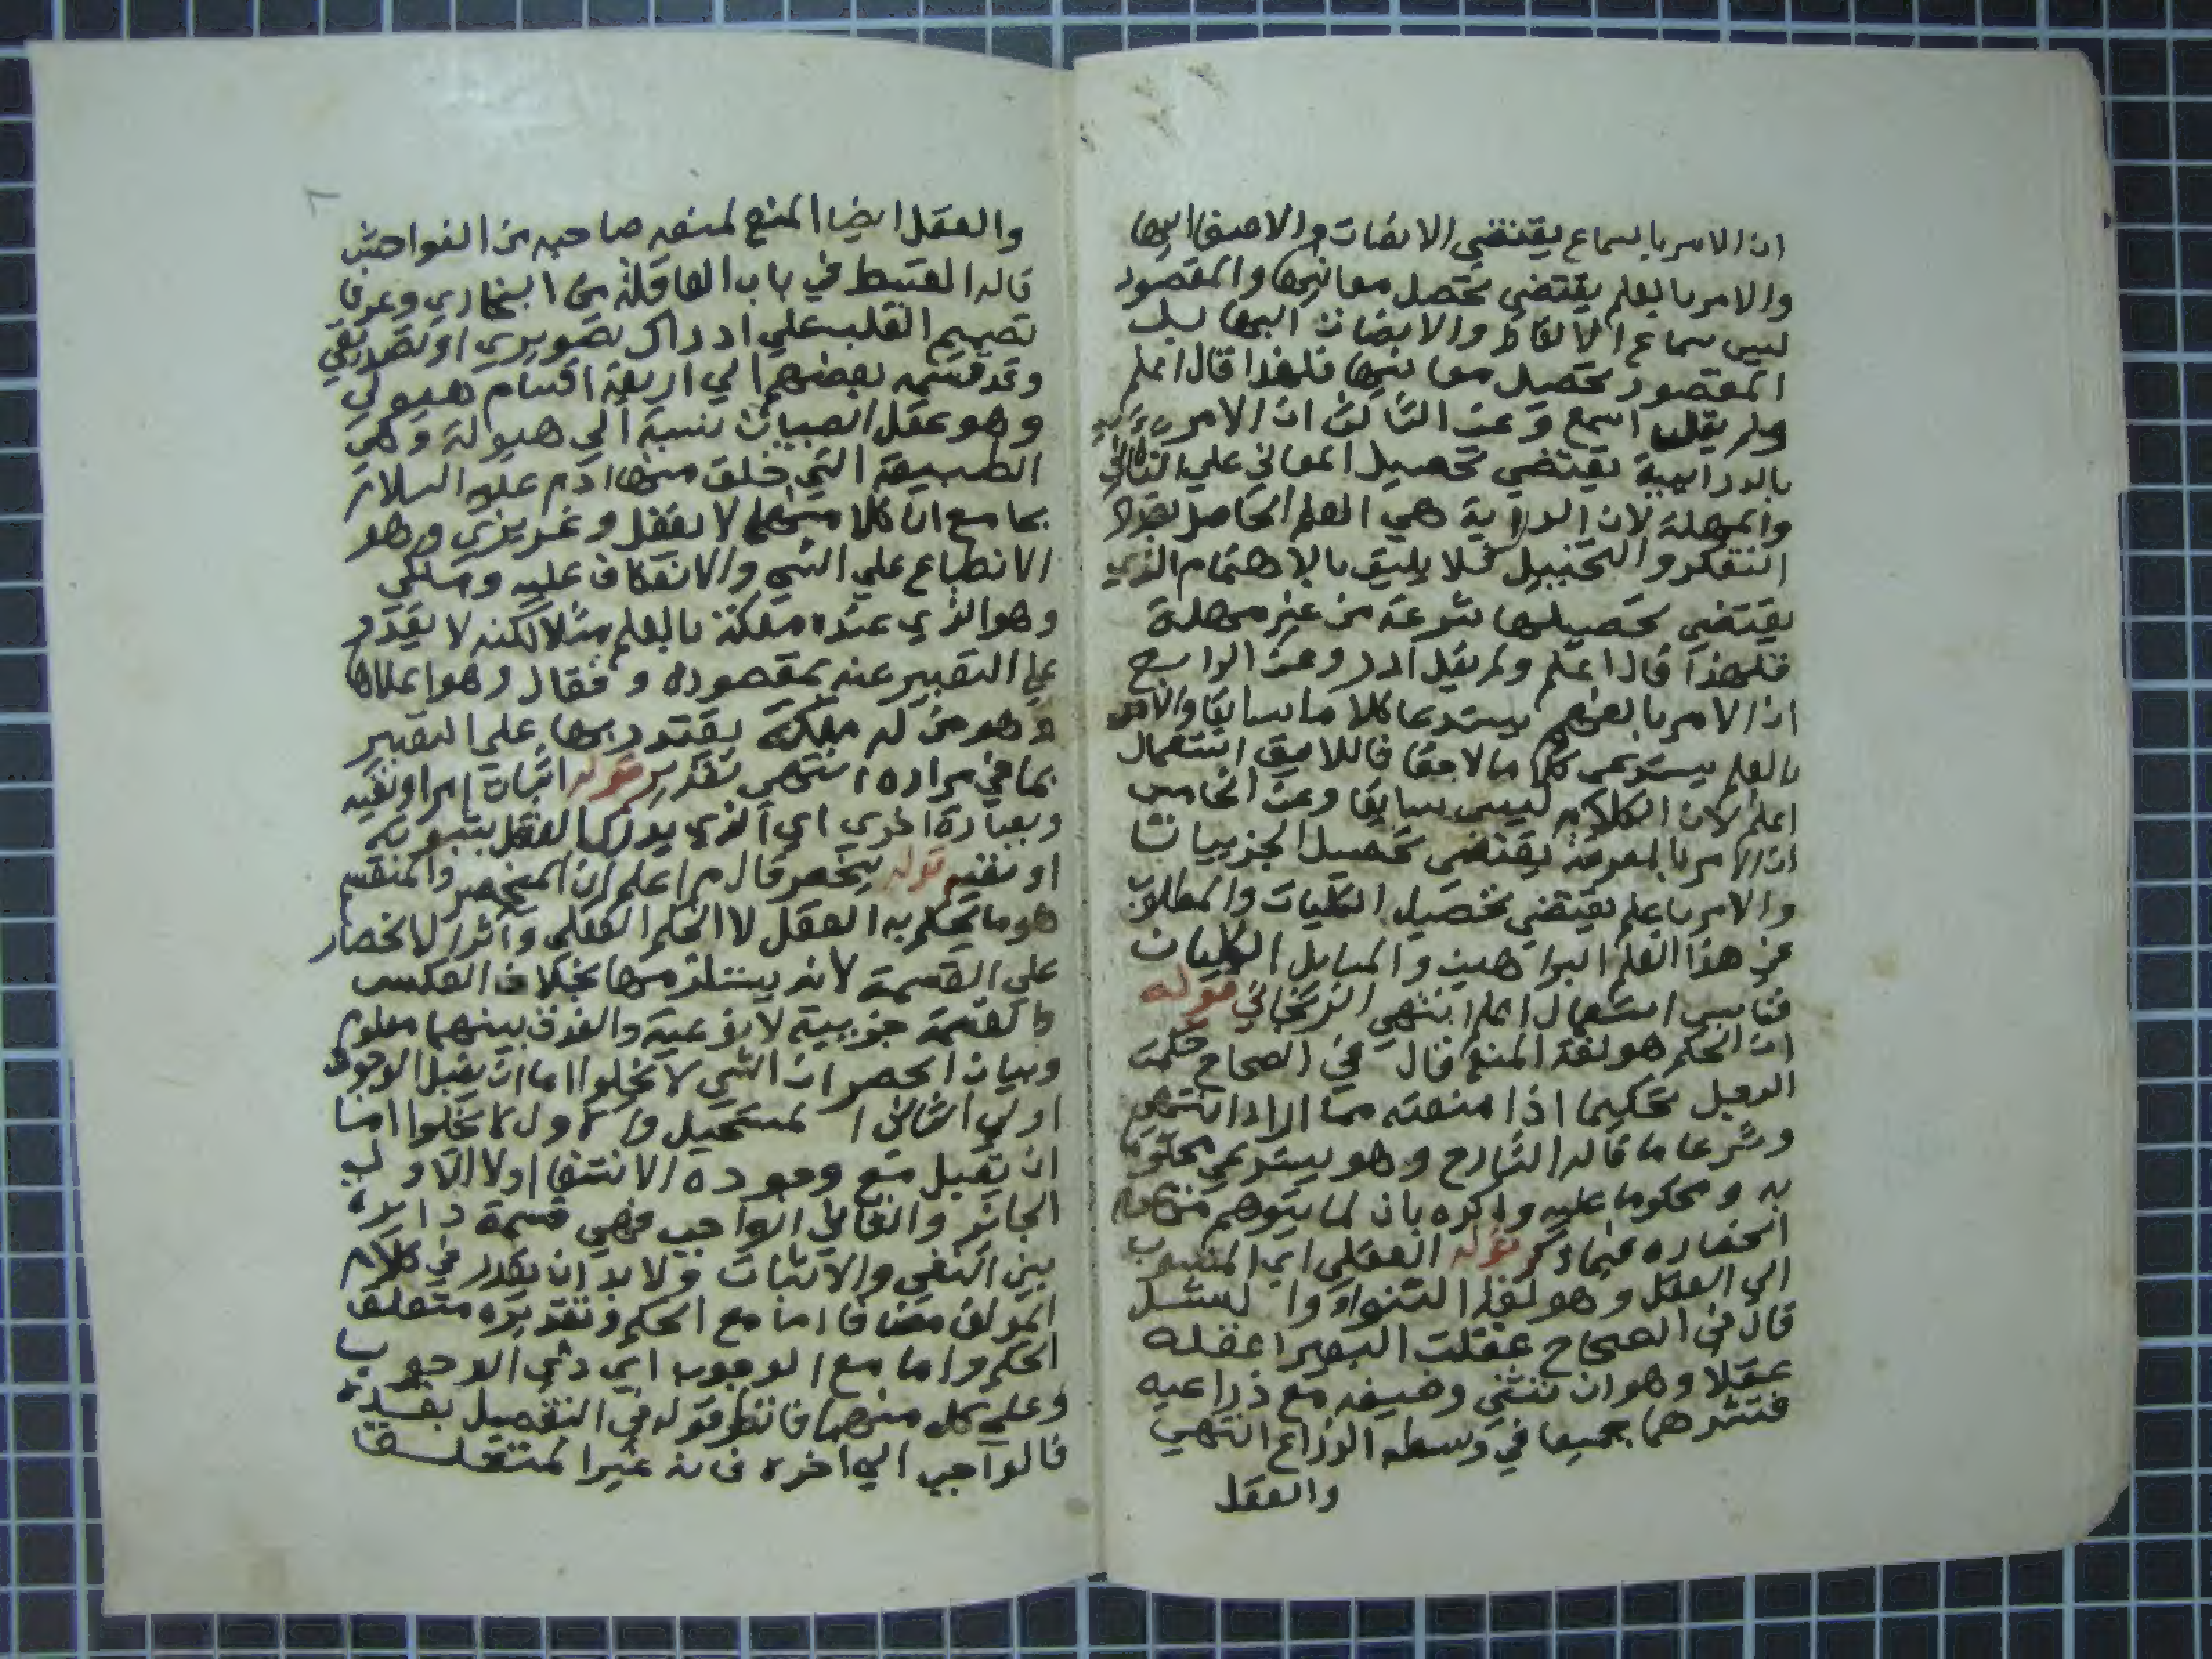 ان الامر بالسماع يقتضي الانصات والاصغا اليها
والامر بالعلم يقتضي تحصل معانيها والمقصود
ليس سماع الالفاظ والانصات اليها بل
المقصود تحصيل معانيها فلهذا قال اعلم
ولم يقل اسمع وعن الثالث ان الامر
بالدراية يقتضي تحصيل المعاني علي التاني
والمهلة لان الدراية هي العلم الحاصل بعد
التفكر والتخييل فلا يليق بالاهتمام الذي
يقتضي تحصيلها بسرعة من غير مهلة
فلهذا قال اعلم ولم يقل ادر وعن الرابع
ان الامر بالفهم يستدعا كلاما سابقا والامر
بالعلم يستدعي كلاما لاحقا فاللايق استعمال
اعلم لان الكلام ليس سابقا وعن الخامس
ان الامر بالمعرفة يقتضي تحصيل الجزييات
والامر باعلم يقتضي تحصيل الكليات والمطلوب
من هذا العلم البراهين والمسايل الكليات
فناسب استعمال اعلم انتهي الزنجاني قوله
ان الحكم هو لغة المنع قال في الصحاح حكمت
الرجل تحكيما اذا منعته مما اراد انتهي
وشرعا ما قاله الشارح وهو يستدعي محكوما
به ومحكوما عليه وذكره بان لما يتوهم من عدم
انحصاره فيما ذكر قوله العقلي اي المنسوب
الي العقل وهو لغة
قال في الصحاح عقلت البعير اعقله
عقلا وهو ان تثني وضيفه مع ذراعيه
فتشدهما جميعا في وسط الذراع انتهي
والعقل
والعقل ايضا المنع لمنعه صاحبه من الفواحش
قاله القسط في باب العاقلة من البخاري وعرفا
تصميم القلب علي ادراك تصويري او تصديقي
وقد قسمه بعضهم الي اربعة اقسام هيولي
وهو عقل الصبيان نسبة الي هيولة وهي
الطبيعة التي خلق منها ادم عليه السلام
بجامع ان كلا منهما لا يعقل وغريزي وهو
الانطباع علي الشي والانعكاف عليه وملكي
وهو الذي عنده ملكة بالعلم مثلا لكنه لا يقدر
علي التعبير عنه بمقصوده وفعال وهو اعلاها
وهو من له ملكة يقتدر بها علي التعبير
بما في مراده انتهي تقدير قوله اثبات امر او نفيه
وبعبارة اخري اي الذي يدرك العقل بثبوته
او نفيه قوله ينحصر قال م اعلم ان المنحصر والمنقسم
هو ما يحكم به العقل لا الحكم العقلي واثر الانحصار
علي القسمة لانه يستلزمها بخلاف العكس
والقسمة جزيية لا نوعية والفرق بينهما معلوم
وبيان الحصر ان الشي لا يخلوا اما ان يقبل الوجود
او لا الثاني المستحيل والاول لا يخلوا اما
ان يقبل مع وجوده الانتفا اولا الاول
الجائز والثاني الواجب فهي قسمة دايرة
بين النفي والاثبات ولا بد ان يقدر في كلام
المولف مضافا اما مع الحكم وتقديره متعلق
الحكم واما مع الوجوب اي ذي الوجوب
وعلي كل منهما فانظر قوله في التفصيل بعده
فالواجب الي اخره فانه غير المتعلق